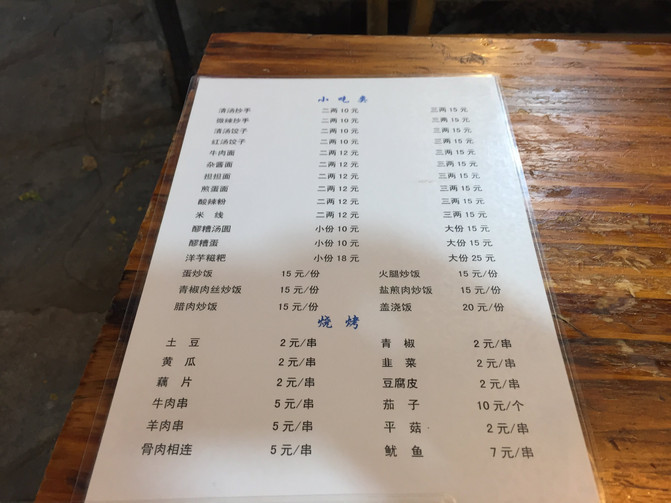 小吃类
清汤炒手 二两 10 元 三两 15 元
微辣炒手 二两 10 元 三两 15 元
清汤饺子 二两 10 元 三两 15 元
红汤饺子 二两 10 元 三两 15 元
牛肉面 二两 12 元 三两 15 元
杂酱面 二两 12 元 三两 15 元
担担面 二两 12 元 三两 15 元
煎蛋面 二两 12 元 三两 15 元
酸辣粉 二两 12 元 三两 15 元
米 线 二两 12 元 三两 15 元
醪糟汤圆 小份 10 元 大份 15 元
醪糟蛋 小份 10 元 大份 15 元
洋芋糍粑 小份 18 元 大份 25 元
蛋炒饭 15 元/份 火腿炒饭 15 元/份
青椒肉丝炒饭 15 元/份 盐煎肉炒饭 15 元/份
腊肉炒饭 15 元/份 盖浇饭 20 元/份
烧 烤
土 豆 2 元/串 青 椒 2 元/串
黄 瓜 2 元/串 韭 菜 2 元/串
藕 片 2 元/串 豆腐皮 2 元/串
牛肉串 5 元/串 茄 子 10 元/个
羊肉串 5 元/串 平 菇 2 元/串
骨肉相连 5 元/串 鱿 鱼 7 元/串